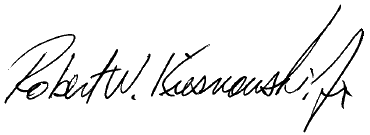 Robert W. Kusnowski, Jr